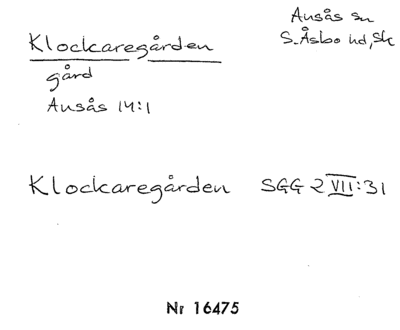 Ausås sn
S. Åsbo hd, Sk
Klockaregården
gård
Ausås 14:1
Klockaregården SGG 2 VII:31
Nr 16475